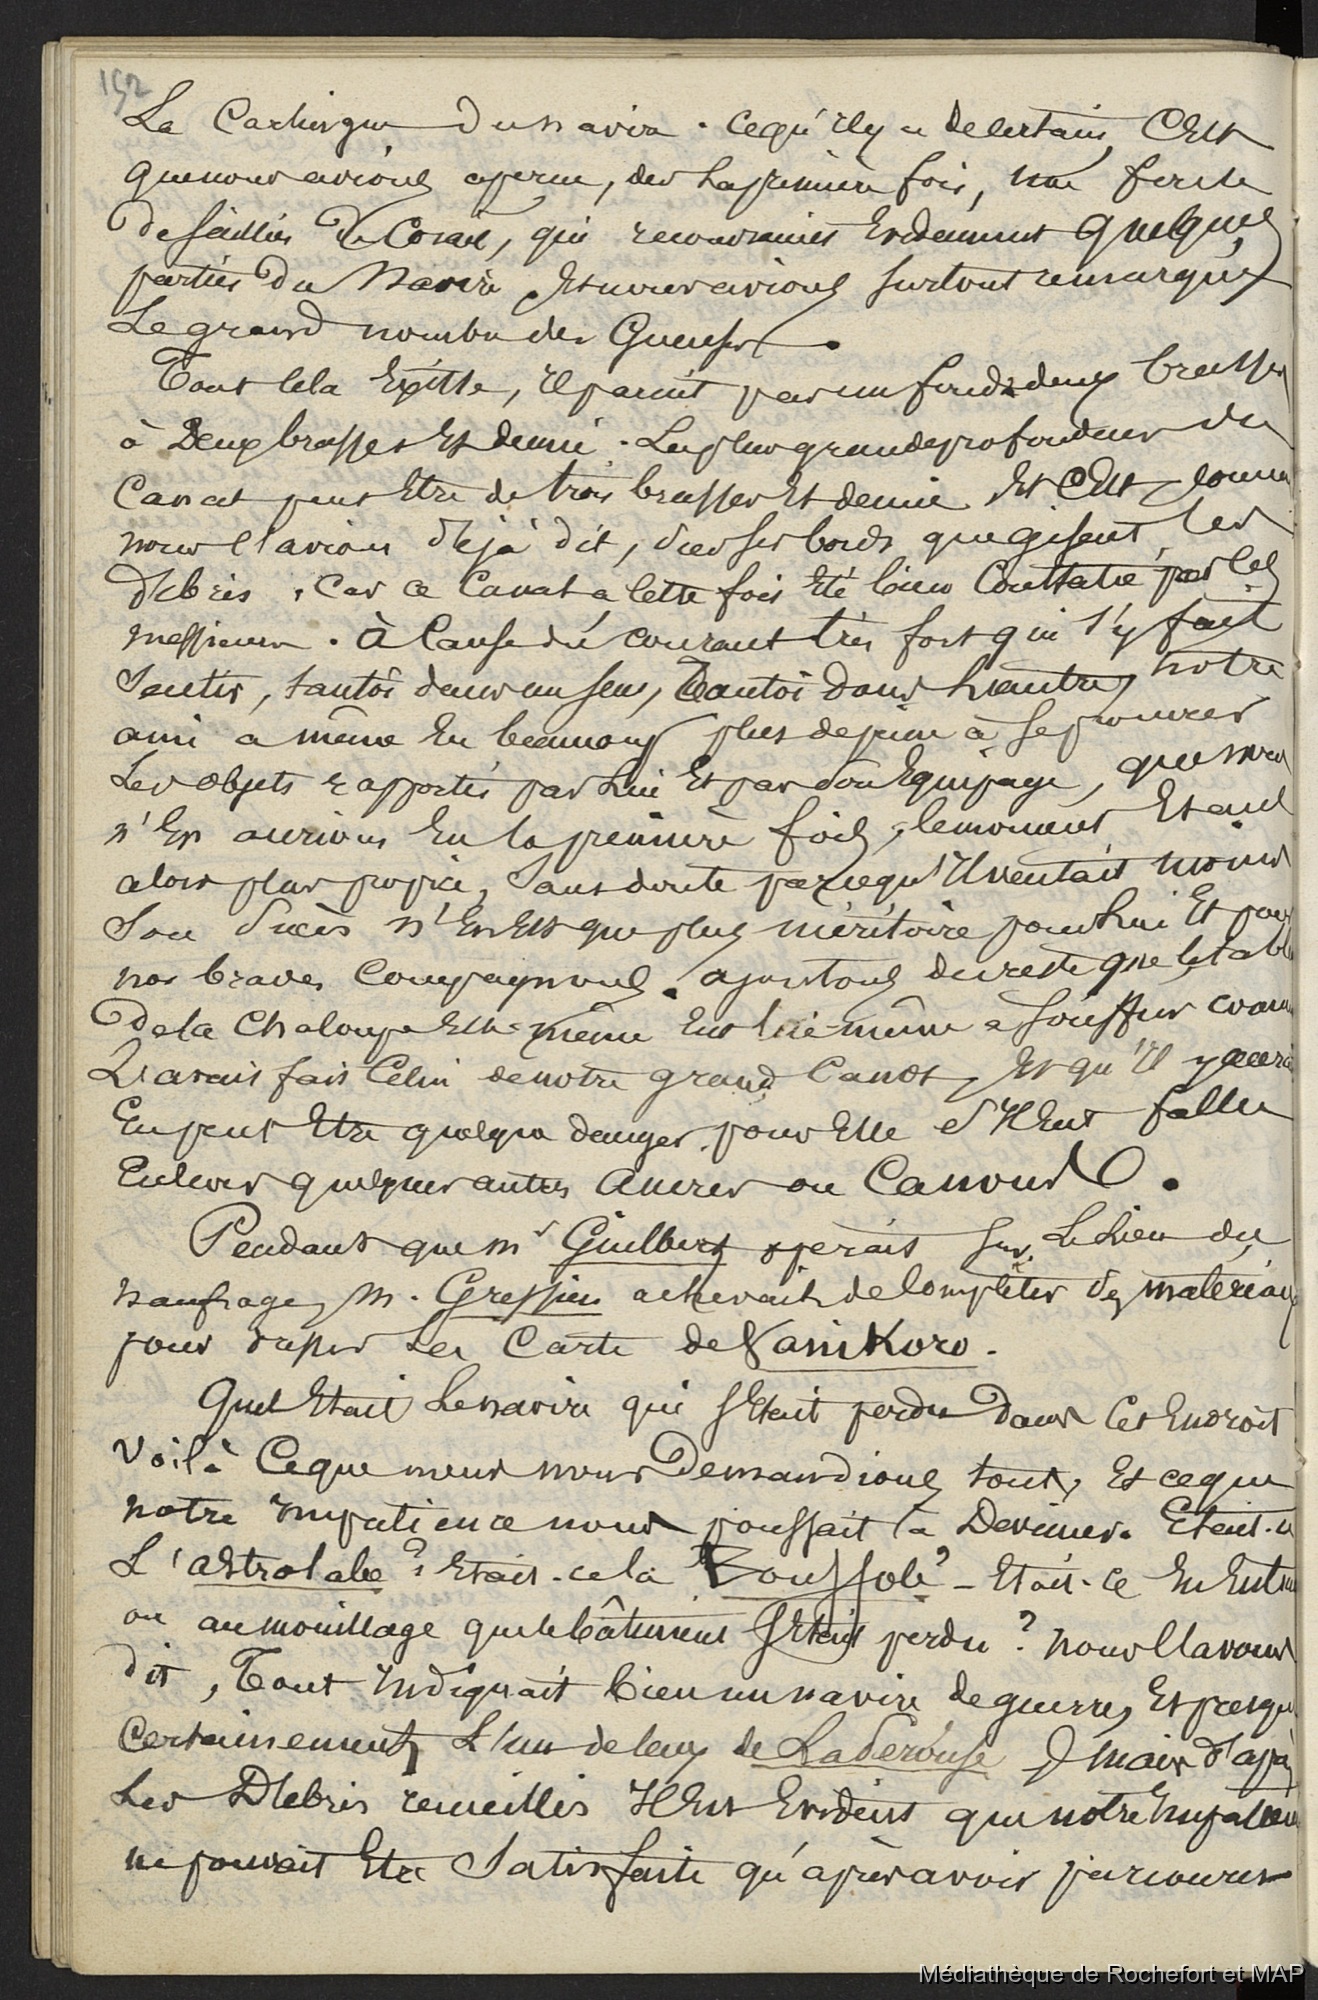 152
La Carlingue du navire. ce qu'il y a de certain, C'Est
que nous avions aperçu, dès la première fois, une foule
de saillies de Corail, qui recouvraient Evidemment quelques
parties du Navire Et nous avions surtout remarqués
Le grand nombre des Gueuses.
Tout cela Existe, il parait par un fond de deux brasses
à Deux brasses Et demie. La plus grande profondeur du
Canal peut Etre de trois brasses Et demie Et C'Est, comme
nous l'avions déjà dit, sur ses bords que gisent, les
débris, Car ce Canal a cette fois Eté bien Constaté par Ces
messieurs. À Cause du courant très fort qui s'y fait
Sentir, tantôt dans un sens, Tantôt dans L'autre, notre
ami a même Eu beaucoup plus de peine à se procurer
Les objets rapportés par Lui Et par son Equipage, que nous
n'En aurions Eu la première fois, le moment Etant
alors plus propice, Sans doute parcequ'Il ventait moins
Son succès n'En Est que plus méritoire pour Lui Et pour
nos braves Compagnons. ajoutons du reste que l'Etabli
De la Chaloupe Elle-même Eut lui-même a Souffrir comme
L'avait fait Celui de notre grand Canot, Et qu'Il y aurait
Eu peut Etre quelque danger pour Elle s'Il Eut fallu
Enlever quelques autres Ancres ou Canons.
Pendant que mr Guilbert opérait sur Le Lieu du
naufrage, M. Gressien achevait de Compléter des matériaux
pour dresser La Carte de Vanikoro.
Quel Etait Le navire qui s'Etait perdu Dans Cet Endroit
Voilà Ce que nous nous Demandions tous, Et ce que
notre impatience nous poussait à Deviner. Etait-ce
L'astrolabe? Etait-ce la Boussole? - Etait-ce En Entrant
ou au mouillage que le bâtiment s'Etait perdu? nous l'avons
dit, Tout indiquait bien un navire de guerre, Et presque
Certainement, L'un de ceux de LaPérouse, mais d'après
Les Débris recueillis Il Est Evident que notre Impatience
ne pouvait Etre Satisfaite qu'après avoir parcouru
Médiathèque de Rochefort et MAP